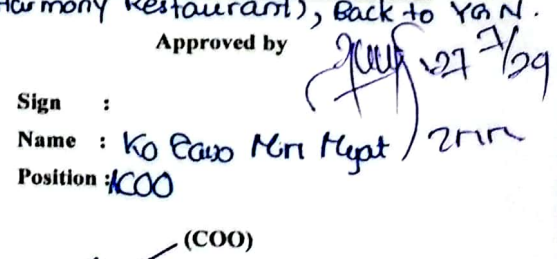 Harmony Restaurant), Back to YGN.
Approved by
Sign :
Name : Ko Min Myat
Position : COO
(COO)